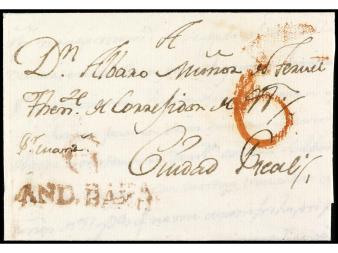 A
Dn Alvaro Muñoz de Teruel
Thente de Corregidor de
Ciudad Real
AND. BAXA
6